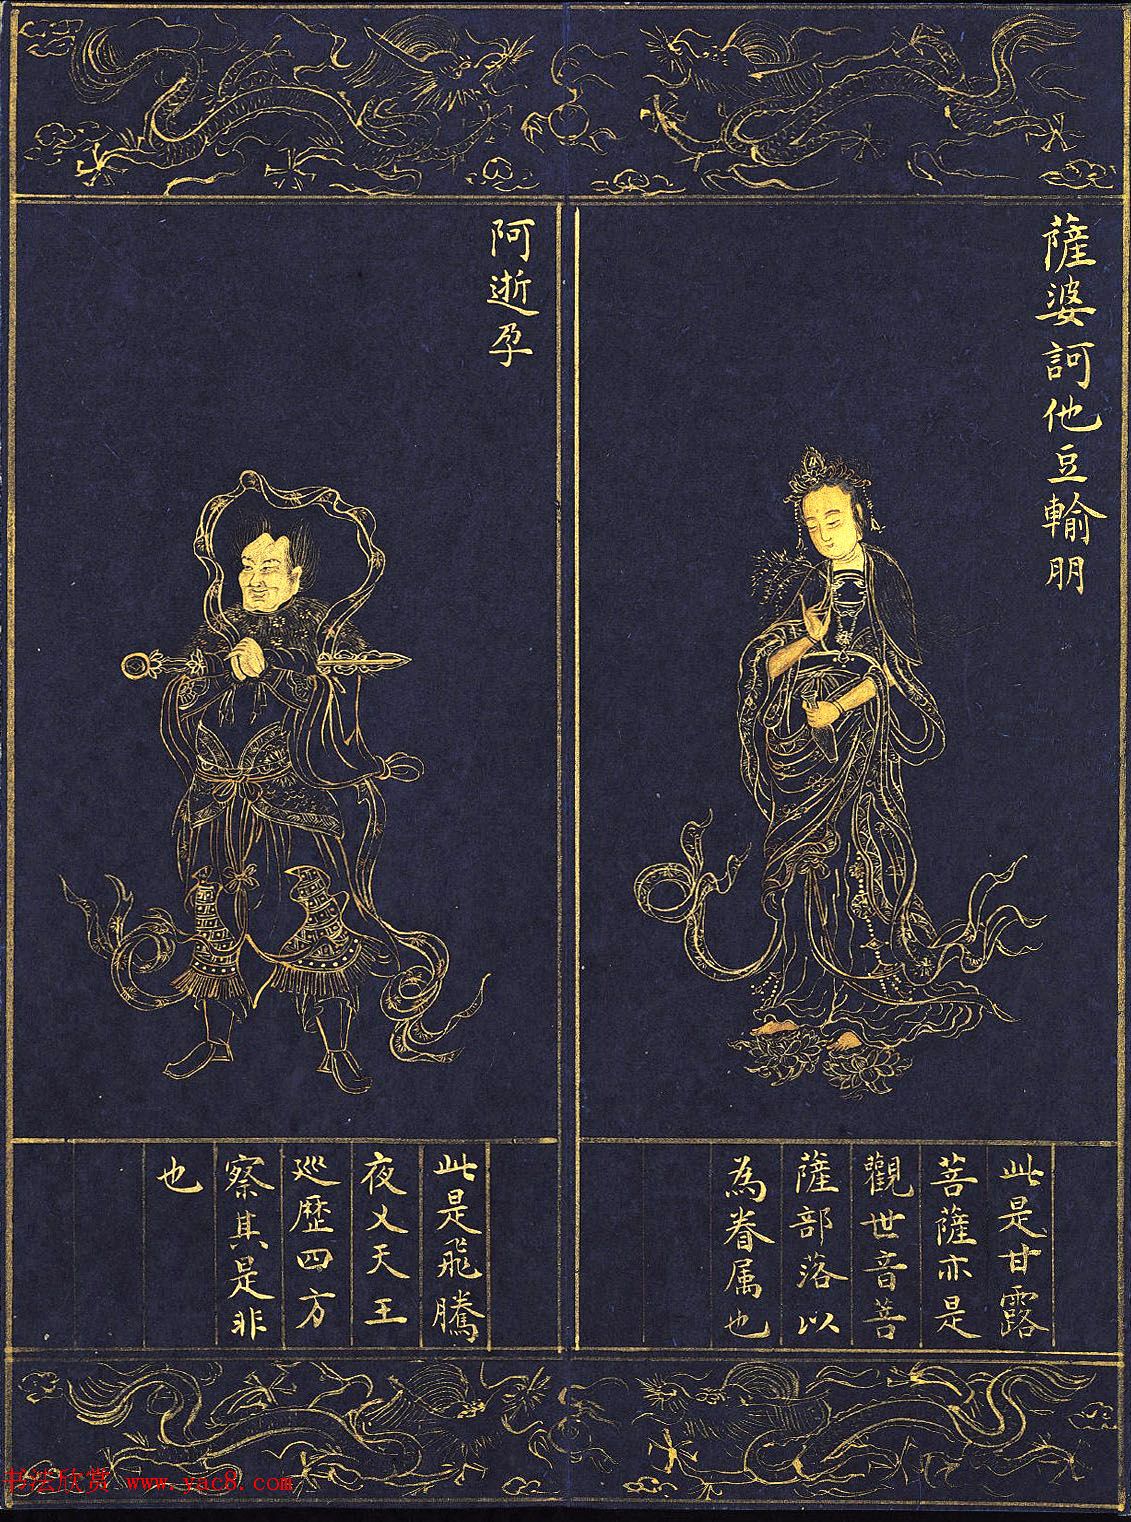 薩婆訶他豆輸朋
此是甘露
菩薩亦是
觀世音菩
薩部落以
為眷属也
阿逝孕
此是飛騰
夜乂天王
巡歷四方
察其是非
也
书法欣赏 www.yac8.com